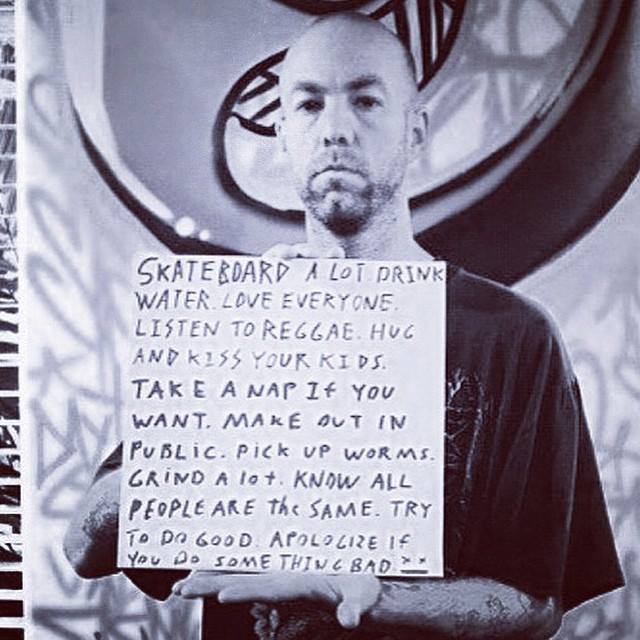 SKATEBOARD A LOT DRINK
WATER. LOVE EVERYONE.
LISTEN TO REGGAE. HUG
AND KISS YOUR KIDS.
TAKE A NAP If YOU
WANT. MAKE OUT IN
PUBLIC. PICK UP WORMS.
GRIND A lot. KNOW ALL
PEOPLE ARE the SAME. TRY
TO DO GOOD. APOLOGIZE If
YOU DO SOMETHING BAD. XX